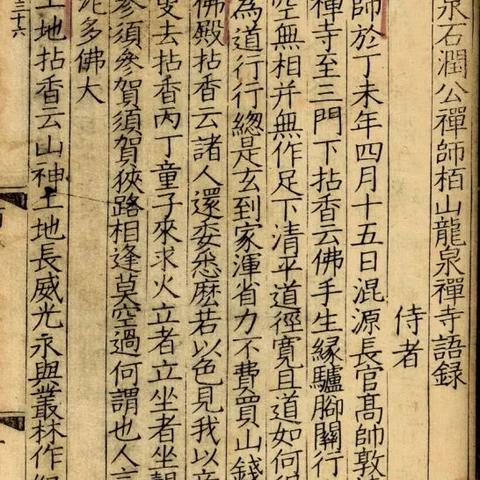 泉石潤公禪師栢山龍泉禪寺語録
侍者
師於丁未年四月十五日混源長官髙師敦
禪寺至三門下拈香云佛手生緣驢脚關行
空無相并無作足下清平道徑寬且道如何
為道行行緫是玄到家渾省力不費買山錢
佛殿拈香云諸人還委悉麽若以色見我以
叟去拈香丙丁童子來求火立者立坐者坐
參須參賀須賀狹路相逢莫空過何謂也人
陀多佛大
土地拈香云山神土地長威光永與叢林作
三十六